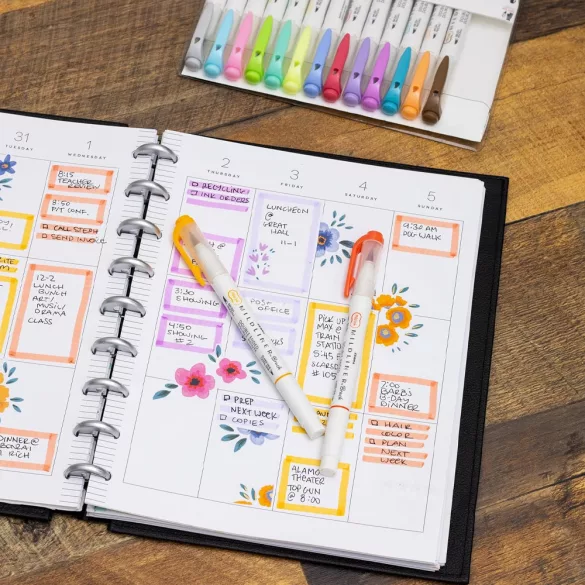 31
TUESDAY
1
WEDNESDAY
8:15
TEACHER
REVIEW
8:50
P/T CONF.
CALL STEPH
SEND INVOICE
12-2
LUNCH
BUNCH
ART/
MUSIC/
DRAMA
CLASS
DINNER @
BONZAI
RICH
2
THURSDAY
RECYCLING
INK ORDERS
3:30
SHOWING
4:50
SHOWING
#2
PREP
NEXT WEEK
COPIES
3
FRIDAY
LUNCHEON
@
GREAT
HALL
11-1
POST
OFFICE
PICK UP
MAX @
TRAIN
STATION
5:45
ALAMO
THEATER
TOP GUN
@ 8:00
4
SATURDAY
5
SUNDAY
9:30 AM
DOG WALK
7:00
BARB'S
B-DAY
DINNER
HAIR
COLOR
PLAN
NEXT
WEEK
MILDLINER
MILDLINER